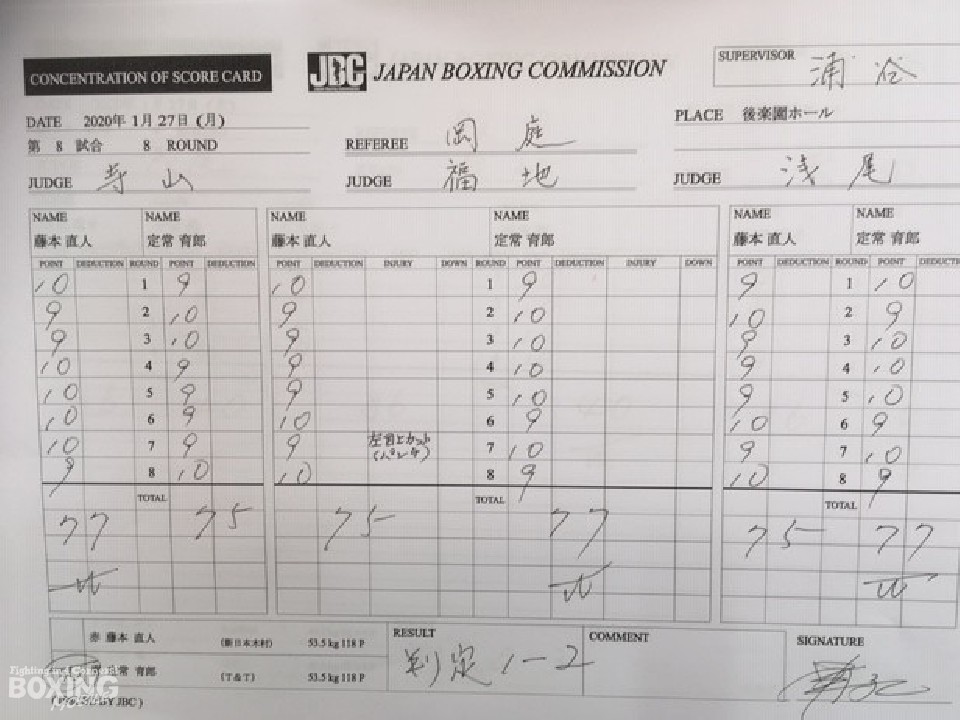 CONCENTRATION OF SCORE CARD
JBC JAPAN BOXING COMMISSION
SUPERVISOR 浦谷
DATE 2020年 1月 27日 (月)
PLACE 後楽園ホール
第 8 試合 8 ROUND
REFEREE 岡庭
JUDGE 寺山
JUDGE 福地
JUDGE 浅尾
NAME NAME NAME NAME NAME NAME
藤本 直人 定常 育郎 藤本 直人 定常 育郎 藤本 直人 定常 育郎
POINT DEDUCTION ROUND POINT DEDUCTION POINT DEDUCTION INJURY DOWN ROUND POINT DEDUCTION INJURY DOWN POINT DEDUCTION ROUND POINT DEDUCTI
10 1 9 10 1 9 9 1 10
9 2 10 9 2 10 10 2 9
9 3 10 9 3 10 9 3 10
10 4 9 9 4 10 9 4 10
10 5 9 9 5 10 9 5 10
10 6 9 10 6 9 10 6 9
10 7 9 9 左目上カット 7 10 9 7 10
(パンチ)
9 8 10 10 8 9 10 8 9
TOTAL TOTAL TOTAL
77 75 75 77 75 77
W W W
赤 藤本 直人 (新日本木村) 53.5 kg 118 P
RESULT 判定 1-2
COMMENT
SIGNATURE
常 育郎 (T&T) 53.5 kg 118 P
BOXING
JBC)